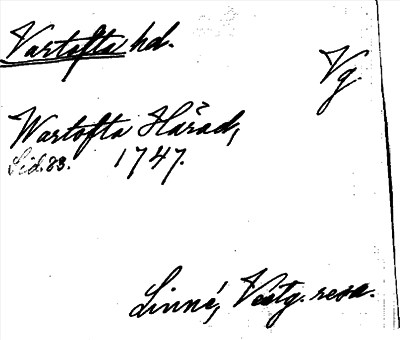 Vartofta hd.
Vg.
Wartofta Härad,
Sid. 83. 1747.
Linné, Västg. resa.